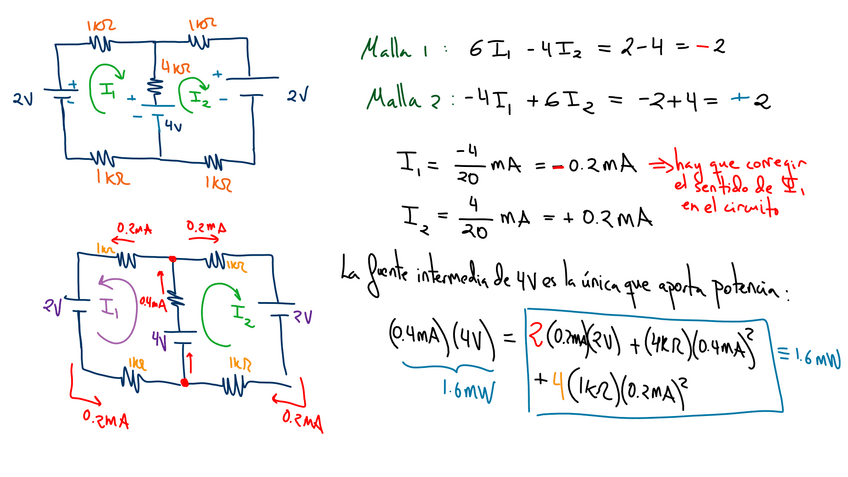 1kΩ 1kΩ
4kΩ
2V + - I₁ + - 4V I₂ + - 2V
1kΩ 1kΩ
Malla 1 : 6I₁ - 4I₂ = 2-4 = -2
Malla 2 : -4I₁ + 6I₂ = -2+4 = +2
I₁ = -4/20 mA = -0.2mA ⇒ hay que corregir
el sentido de I₁
en el circuito
I₂ = 4/20 mA = +0.2mA
0.2mA 0.2mA
1kΩ 1kΩ
2V I₁ 0.4mA 4V I₂ 2V
1kΩ 1kΩ
0.2mA 0.2mA
La fuente intermedia de 4V es la única que aporta potencia :
(0.4mA)(4V) = 2(0.2mA)(2V) + (4kΩ)(0.4mA)²
+ 4(1kΩ)(0.2mA)²
1.6mW
≡ 1.6mW